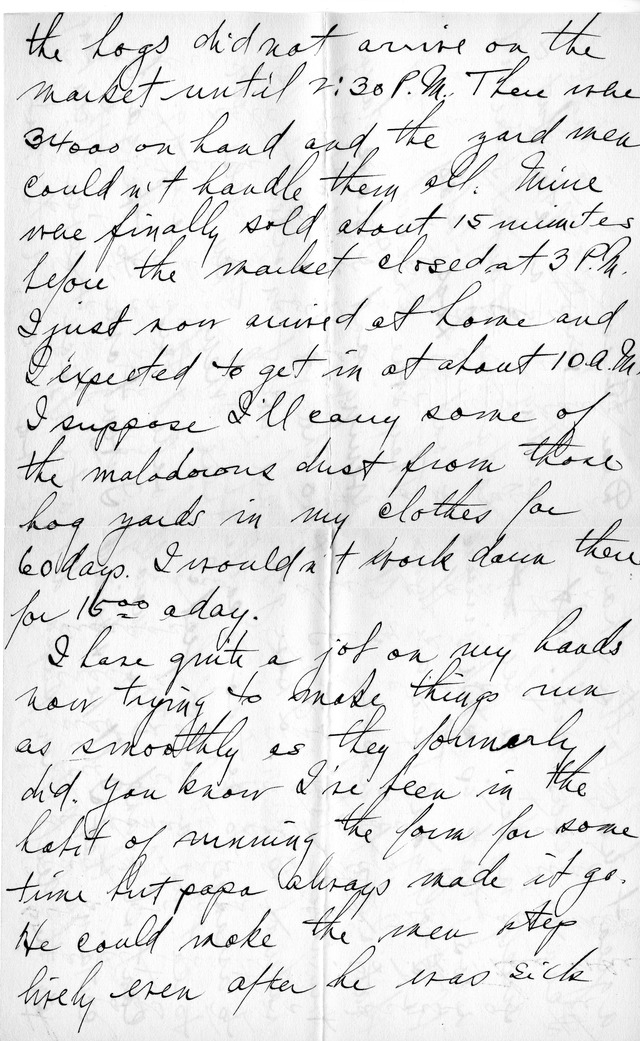 the hogs did not arrive on the
market until 2:30 P.M. There were
34000 on hand and the yard men
couldn't handle them all. Mine
were finally sold about 15 minutes
before the market closed at 3 P.M.
I just now arrived at home and
I expected to get in at about 10 a.m.
I suppose I'll carry some of
the malodorous dust from those
hog yards in my clothes for
60 days. I wouldn't work down there
for 15.00 a day.
I have quite a job on my hands
now trying to make things run
as smoothly as they formerly
did. You know I've been in the
habit of running the farm for some
time but papa always made it go.
He could make the men step
lively even after he was sick